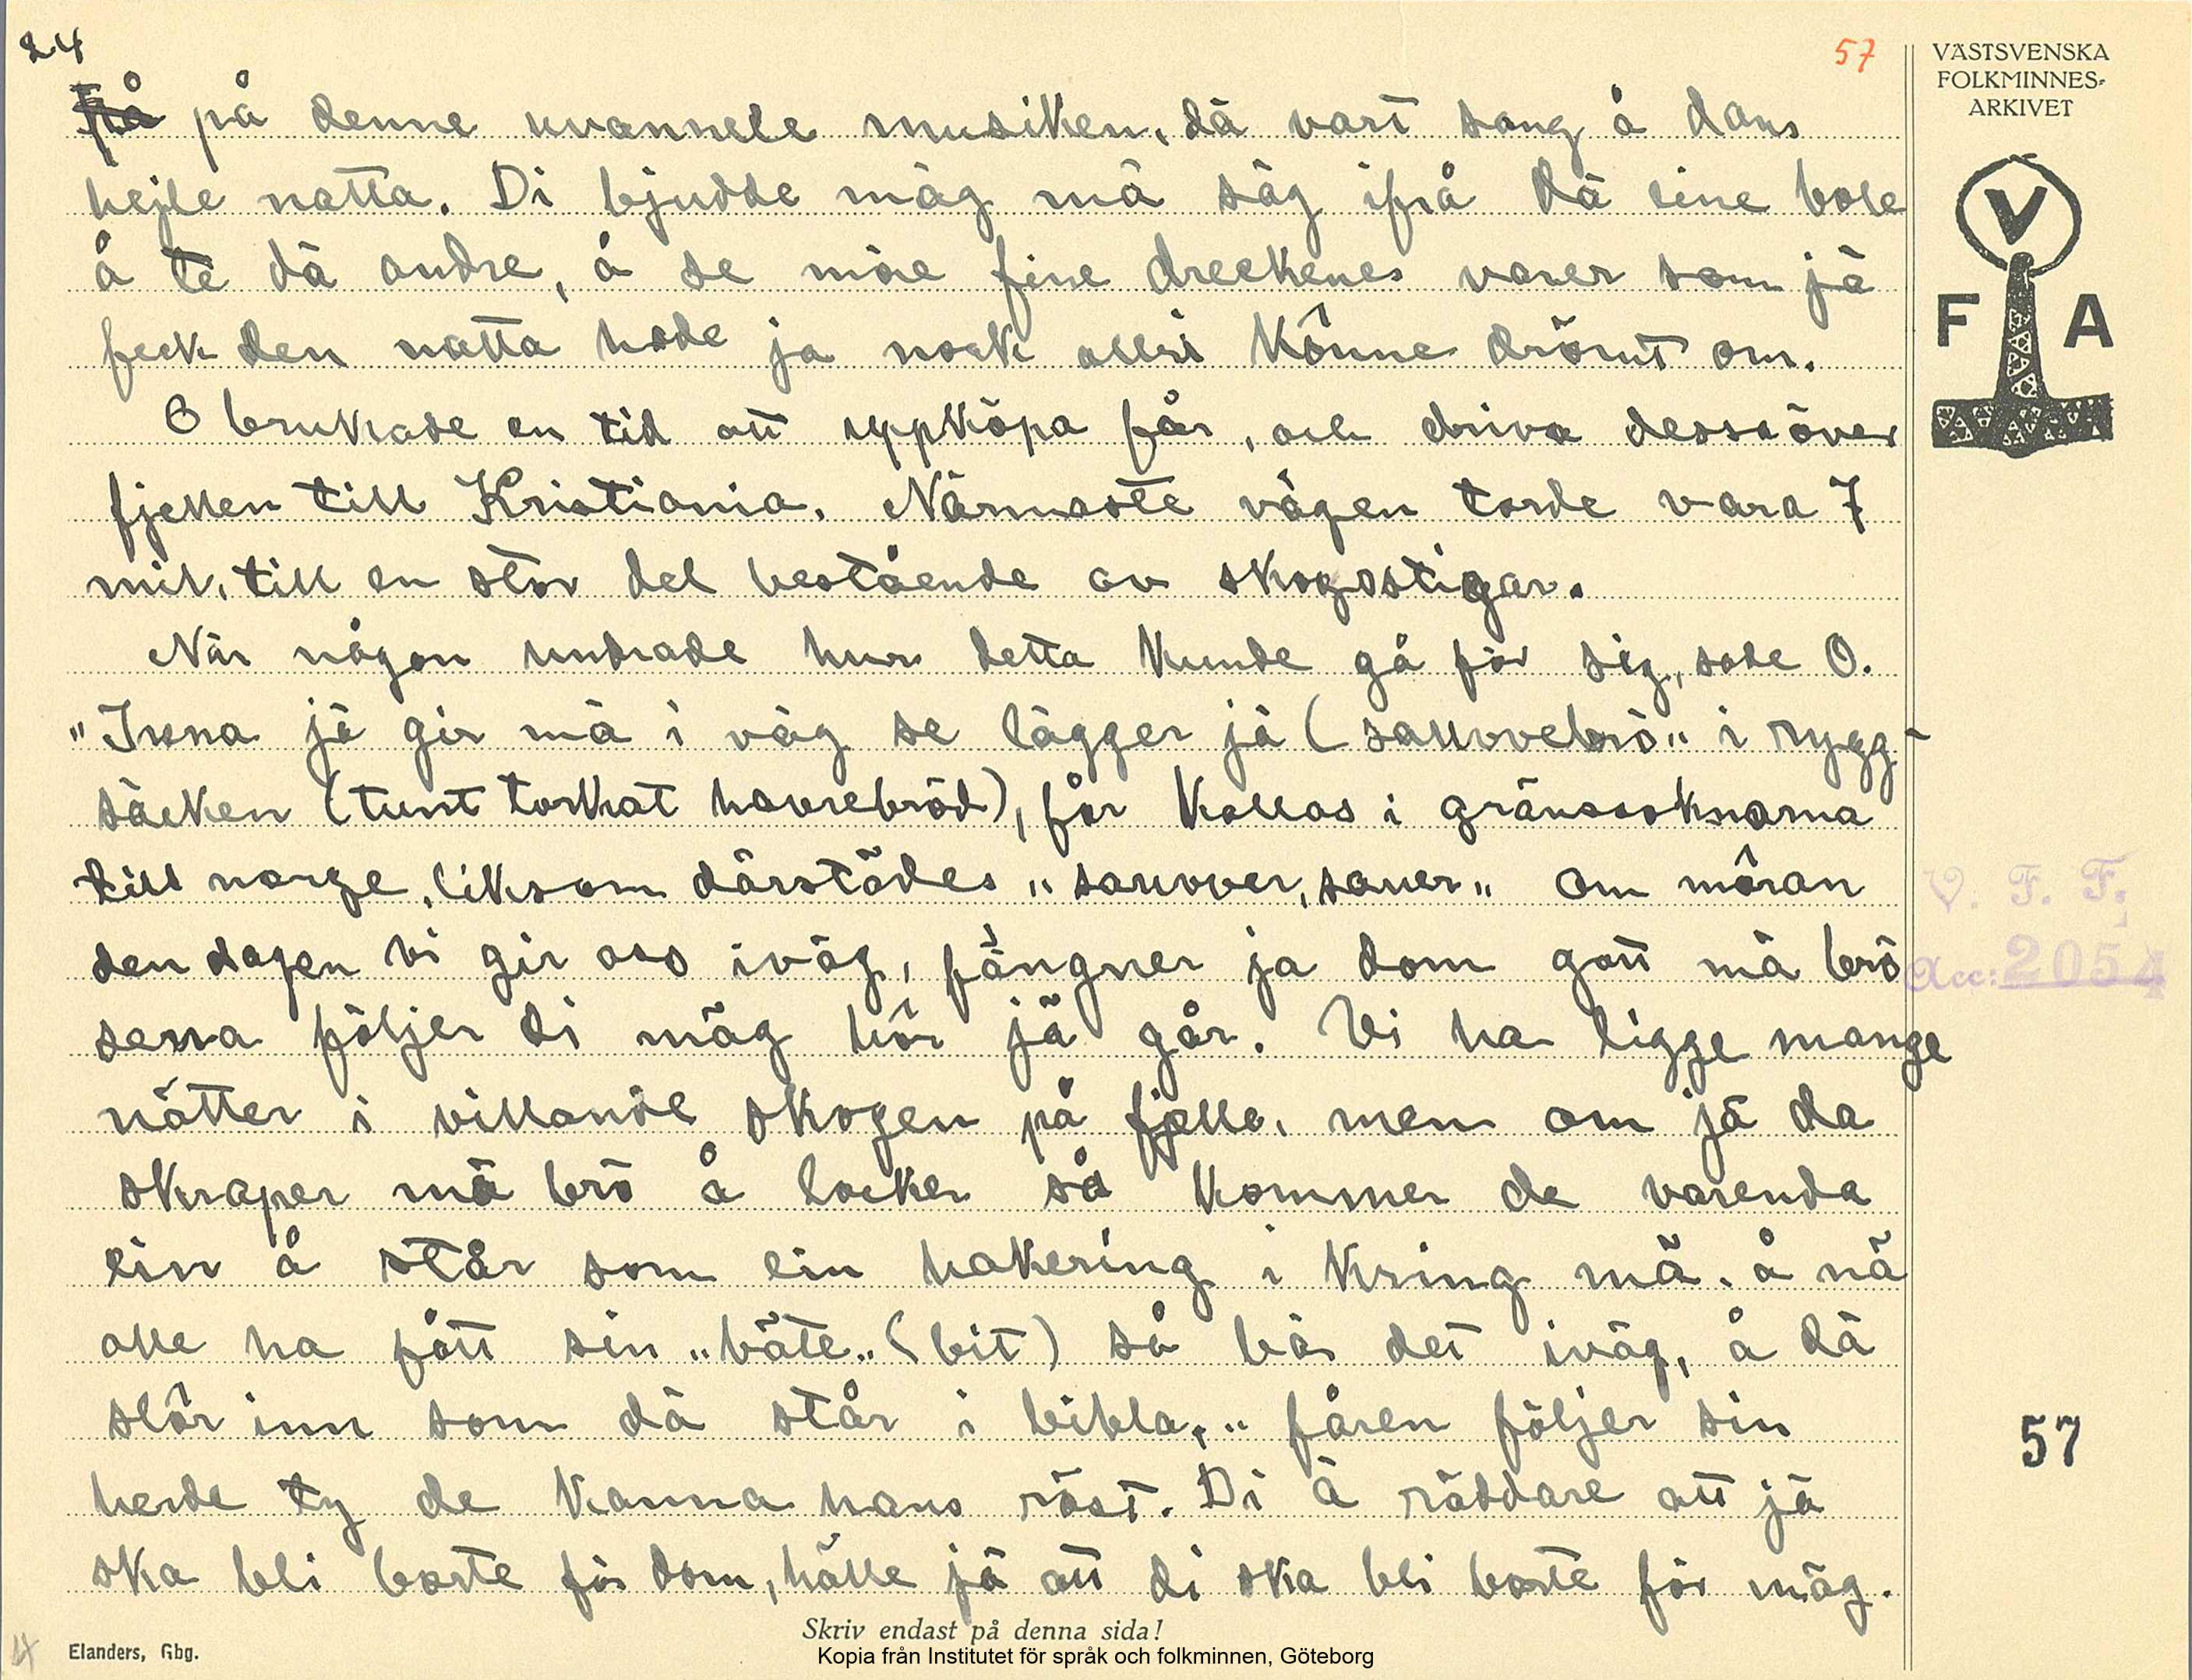 24
57
VÄSTSVENSKA
FOLKMINNES-
ARKIVET
V
F A
på denne uvannele musiken, dä vart sang å dans
hejle natta. Di bjudde mäg mä säg ifrå dä eine bole
å te dä andre, å se möe fine dreckenes varer som jä
feck den natta hade ja nock allri kônne drömt om.
O brukade en tid att uppköpa får, och driva dessa över
fjellen till Kristiania. Närmaste vägen torde vara 7
mil, till en stor del bestående av skogsstigar.
När någon undrade hur detta kunde gå för sig, sade O.
"Inna jä gir mä i väg se lägger jä ( sauvvebrö" i rygg-
säcken (tunt torkat havrebröd), får kallas i gränssoknarna
till norge, liksom därstädes "sauvver, sauer" om môran
den dagen vi gir oss iväg, fängner ja dom gott mä brö
senna följer di mäg hôr jä går. Vi ha ligge mange
nätter i villande skogen på fjelle, men om jä da
skraper mä brö å locker så kommer de varenda
ein å står som ein hakering i kring mä. å nä
alle ha fått sin "bäte" (bit) så bär det iväg, å dä
slôr inn som dä står i bibla, " fåren följer sin
herde ty de kanna hans röst. Di ä räddare att jä
ska bli borte för dom, hälle jä att di ska bli borte för mäg.
V. F. F.
Acc: 2054
57
Skriv endast på denna sida!
4
Elanders, Gbg.
Kopia från Institutet för språk och folkminnen, Göteborg